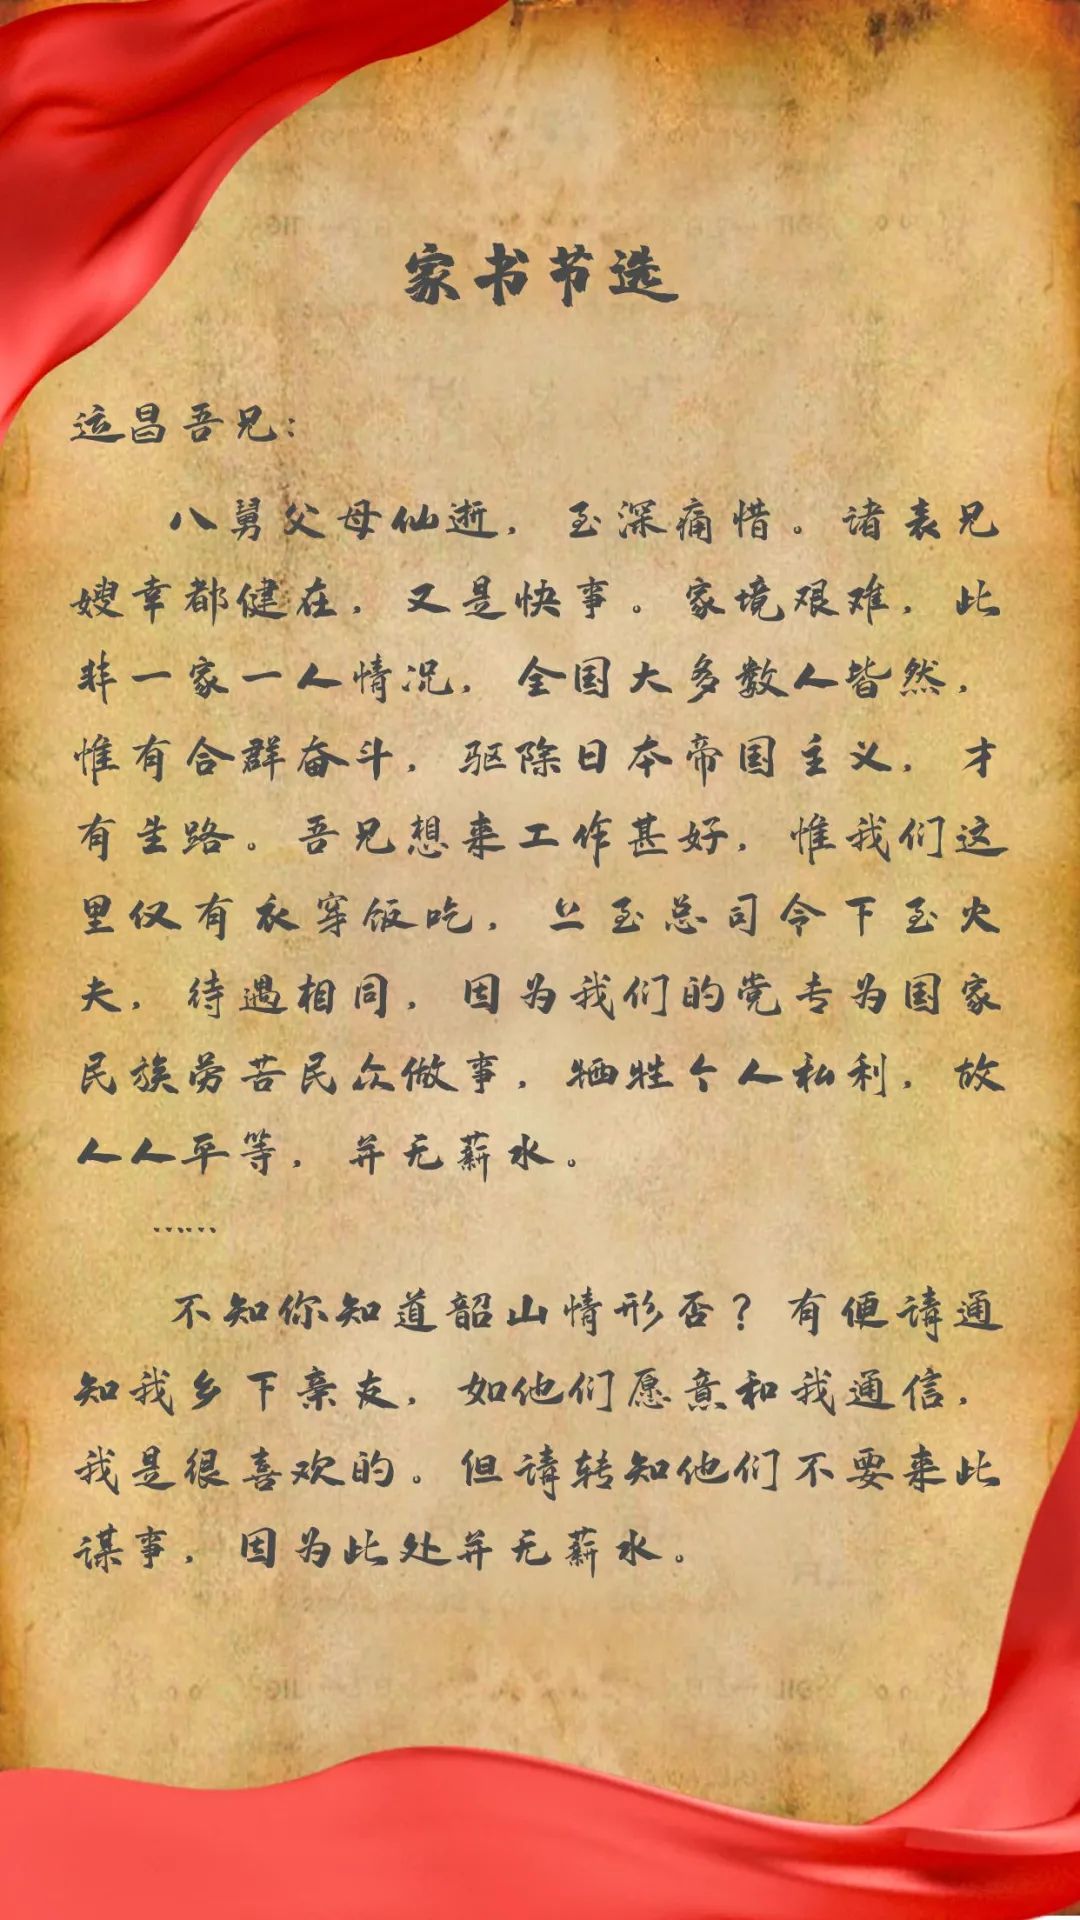 家书节选
运昌吾兄：
八舅父母仙逝，至深痛惜。诸表兄
嫂幸都健在，又是快事。家境艰难，此
非一家一人情况，全国大多数人皆然，
惟有合群奋斗，驱除日本帝国主义，才
有生路。吾兄想来工作甚好，惟我们这
里仅有衣穿饭吃，上至总司令下至火
夫，待遇相同，因为我们的党专为国家
民族劳苦民众做事，牺牲个人私利，故
人人平等，并无薪水。
……
不知你知道韶山情形否？有便请通
知我乡下亲友，如他们愿意和我通信，
我是很喜欢的。但请转知他们不要来此
谋事，因为此处并无薪水。